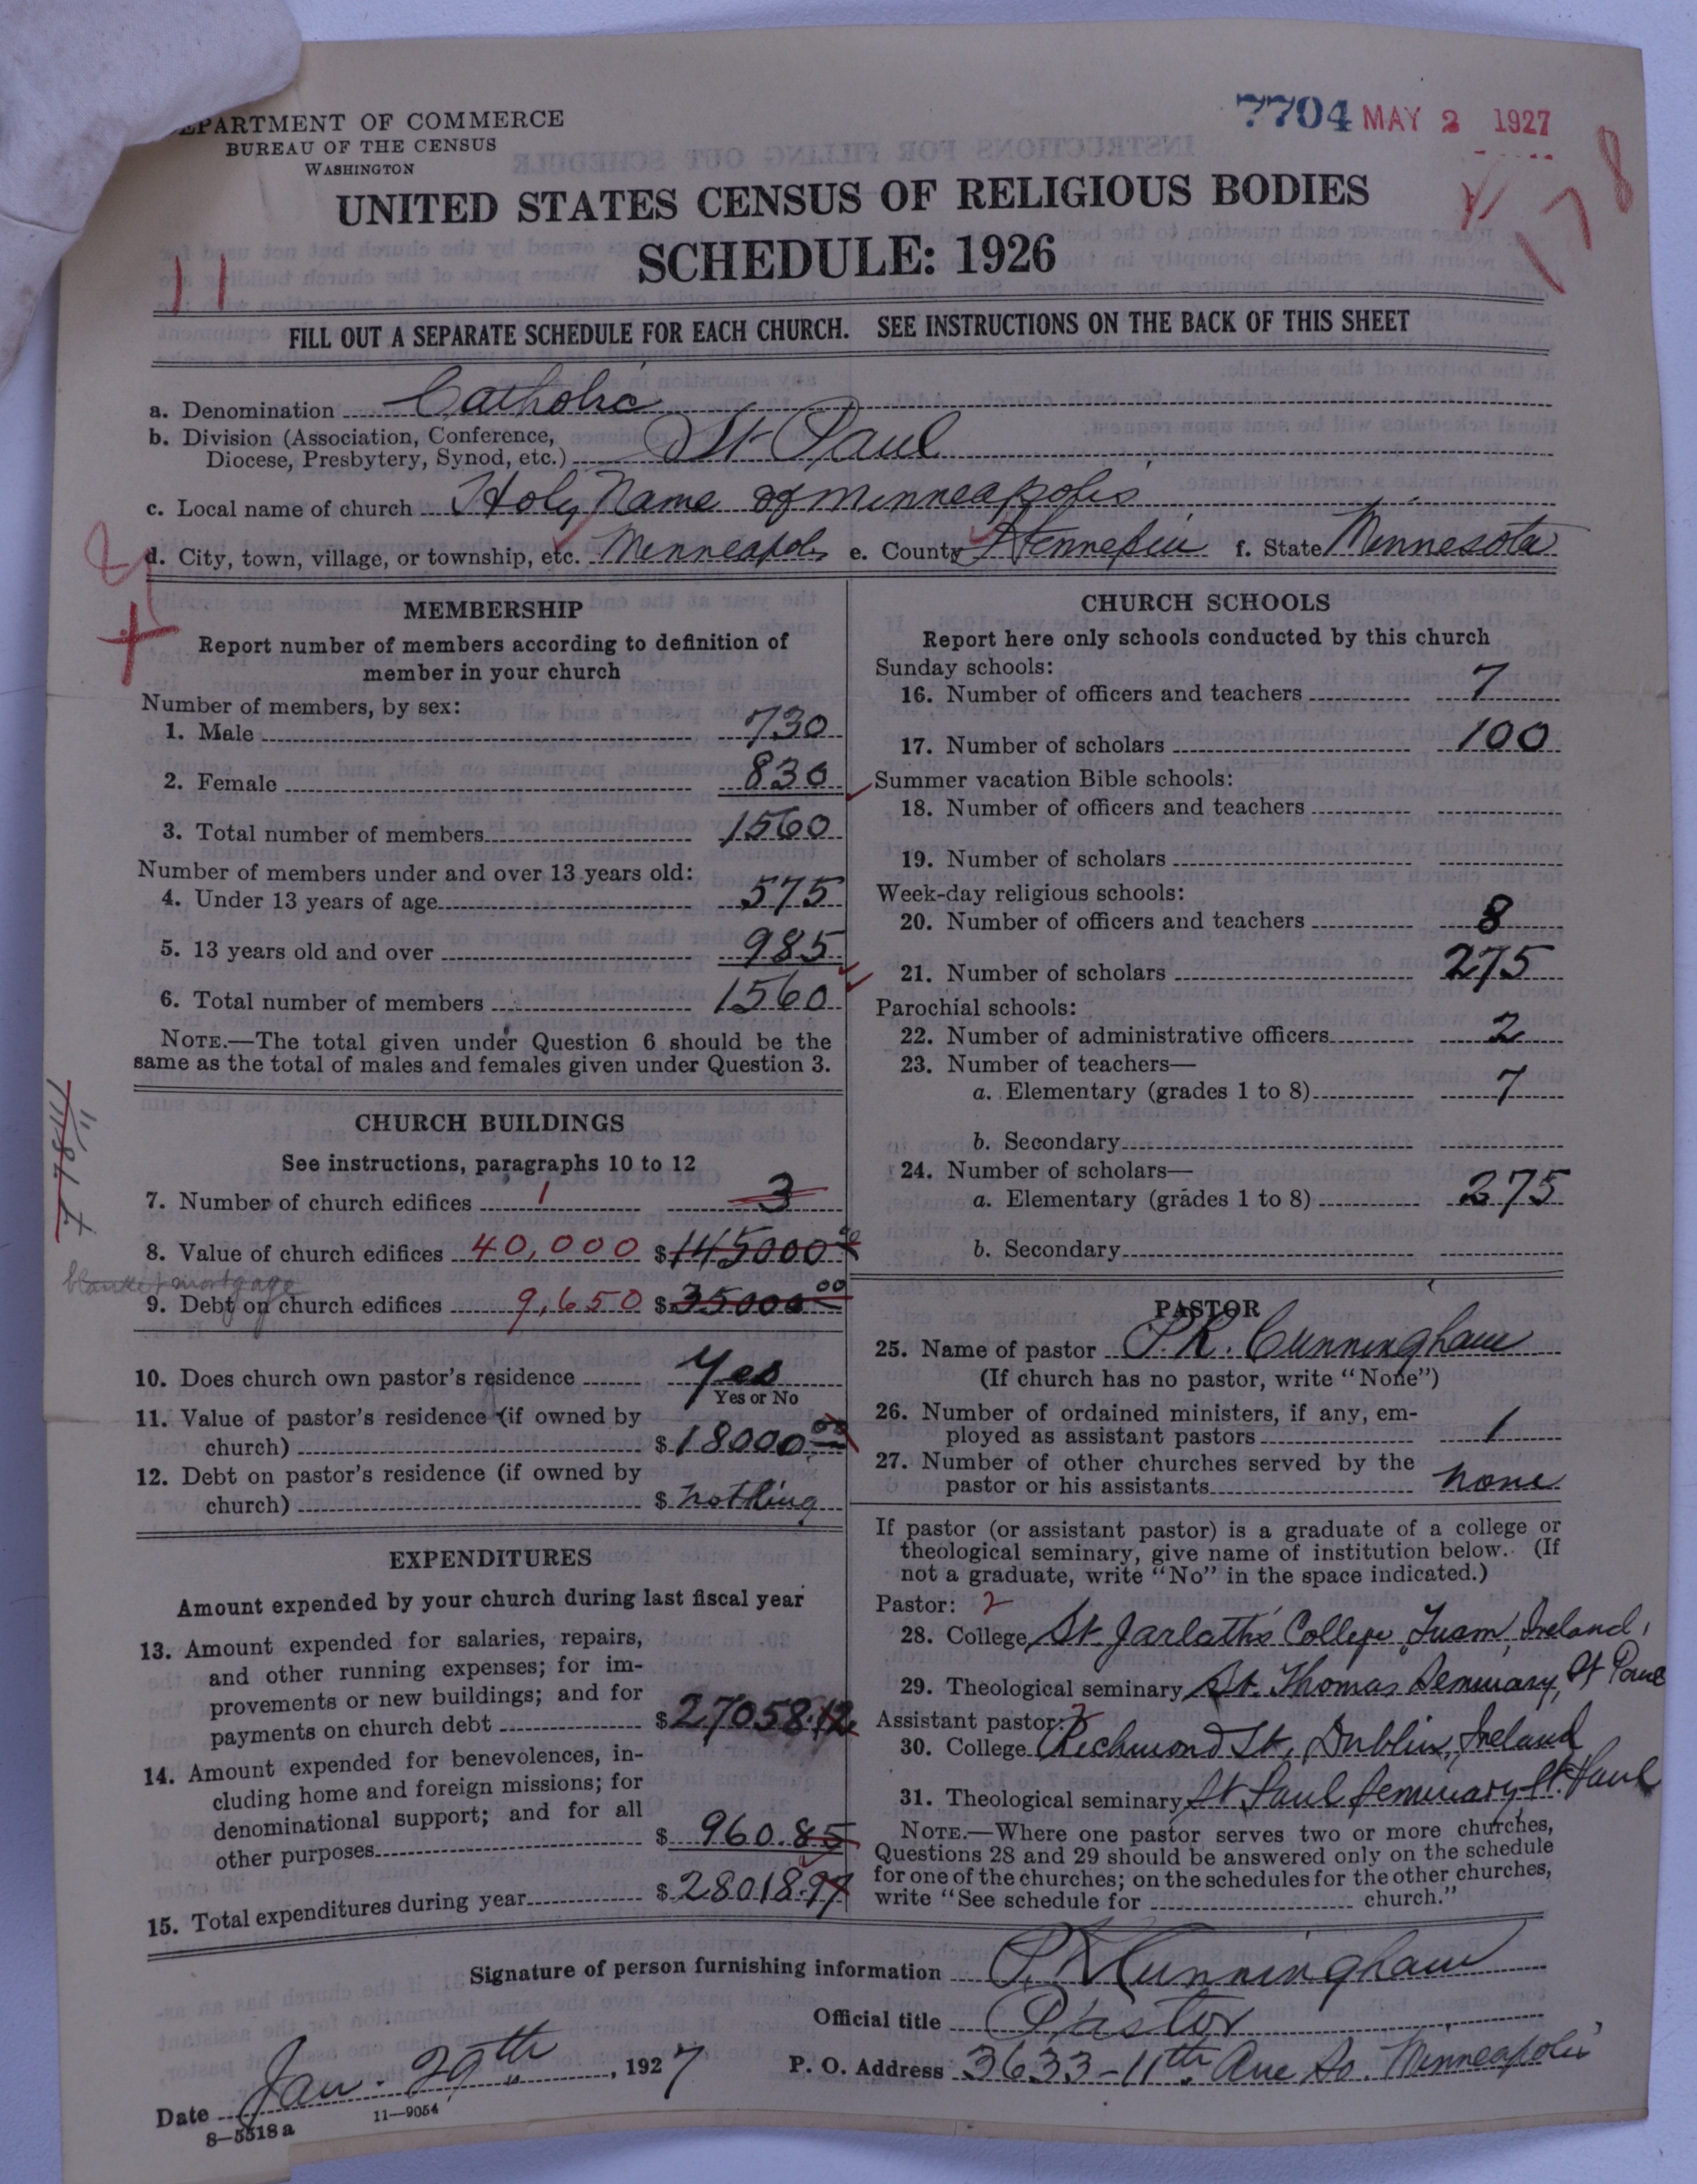 DEPARTMENT OF COMMERCE
BUREAU OF THE CENSUS
WASHINGTON
7704 MAY 2 1927
178
11
UNITED STATES CENSUS OF RELIGIOUS BODIES
SCHEDULE: 1926
FILL OUT A SEPARATE SCHEDULE FOR EACH CHURCH. SEE INSTRUCTIONS ON THE BACK OF THIS SHEET
a. Denomination Catholic
b. Division (Association, Conference,
Diocese, Presbytery, Synod, etc.) St Paul
c. Local name of church Holy Name of Minneapolis
d. City, town, village, or township, etc. Minneapolis e. County Hennepin f. State Minnesota
MEMBERSHIP
Report number of members according to definition of
member in your church
Number of members, by sex:
1. Male 730
2. Female 830
3. Total number of members 1560
Number of members under and over 13 years old:
4. Under 13 years of age 575
5. 13 years old and over 985
6. Total number of members 1560
NOTE.—The total given under Question 6 should be the
same as the total of males and females given under Question 3.
CHURCH BUILDINGS
See instructions, paragraphs 10 to 12
7. Number of church edifices 1 3
8. Value of church edifices 40,000 $145000.00
blanket mortgage
9. Debt on church edifices 9,650 $35000.00
10. Does church own pastor's residence Yes
Yes or No
11. Value of pastor's residence (if owned by
church) $18000.00
12. Debt on pastor's residence (if owned by
church) $ nothing
EXPENDITURES
Amount expended by your church during last fiscal year
13. Amount expended for salaries, repairs,
and other running expenses; for im-
provements or new buildings; and for
payments on church debt $27058.12
14. Amount expended for benevolences, in-
cluding home and foreign missions; for
denominational support; and for all
other purposes $960.85
15. Total expenditures during year $28018.97
CHURCH SCHOOLS
Report here only schools conducted by this church
Sunday schools:
16. Number of officers and teachers 7
17. Number of scholars 100
Summer vacation Bible schools:
18. Number of officers and teachers
19. Number of scholars
Week-day religious schools:
20. Number of officers and teachers 8
21. Number of scholars 275
Parochial schools:
22. Number of administrative officers 2
23. Number of teachers—
a. Elementary (grades 1 to 8) 7
b. Secondary
24. Number of scholars—
a. Elementary (grades 1 to 8) 275
b. Secondary
PASTOR
25. Name of pastor P. R. Cunningham
(If church has no pastor, write "None")
26. Number of ordained ministers, if any, em-
ployed as assistant pastors 1
27. Number of other churches served by the
pastor or his assistants none
If pastor (or assistant pastor) is a graduate of a college or
theological seminary, give name of institution below. (If
not a graduate, write "No" in the space indicated.)
Pastor: 2
28. College St. Jarlath's College, Tuam, Ireland,
29. Theological seminary St. Thomas Seminary, St Paul
Assistant pastor: 2
30. College Richmond St., Dublin, Ireland
31. Theological seminary St Paul Seminary St. Paul
NOTE.—Where one pastor serves two or more churches,
Questions 28 and 29 should be answered only on the schedule
for one of the churches; on the schedules for the other churches,
write "See schedule for church."
Signature of person furnishing information P. R. Cunningham
Official title Pastor
Date Jan. 29th, 1927 P. O. Address 3633-11th Ave So. Minneapolis
8—5518a 11—9054